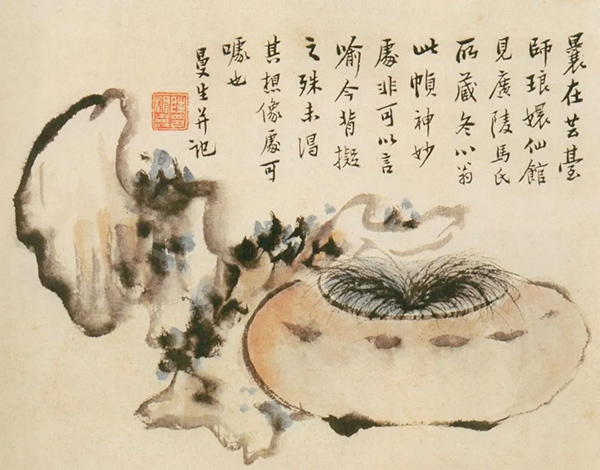 曩在芸臺
師琅嬛仙館
見廣陵馬氏
所藏冬心翁
此幀神妙
處非可以言
喻今背擬
之殊未得
其想像處可
噱也
曼生并記